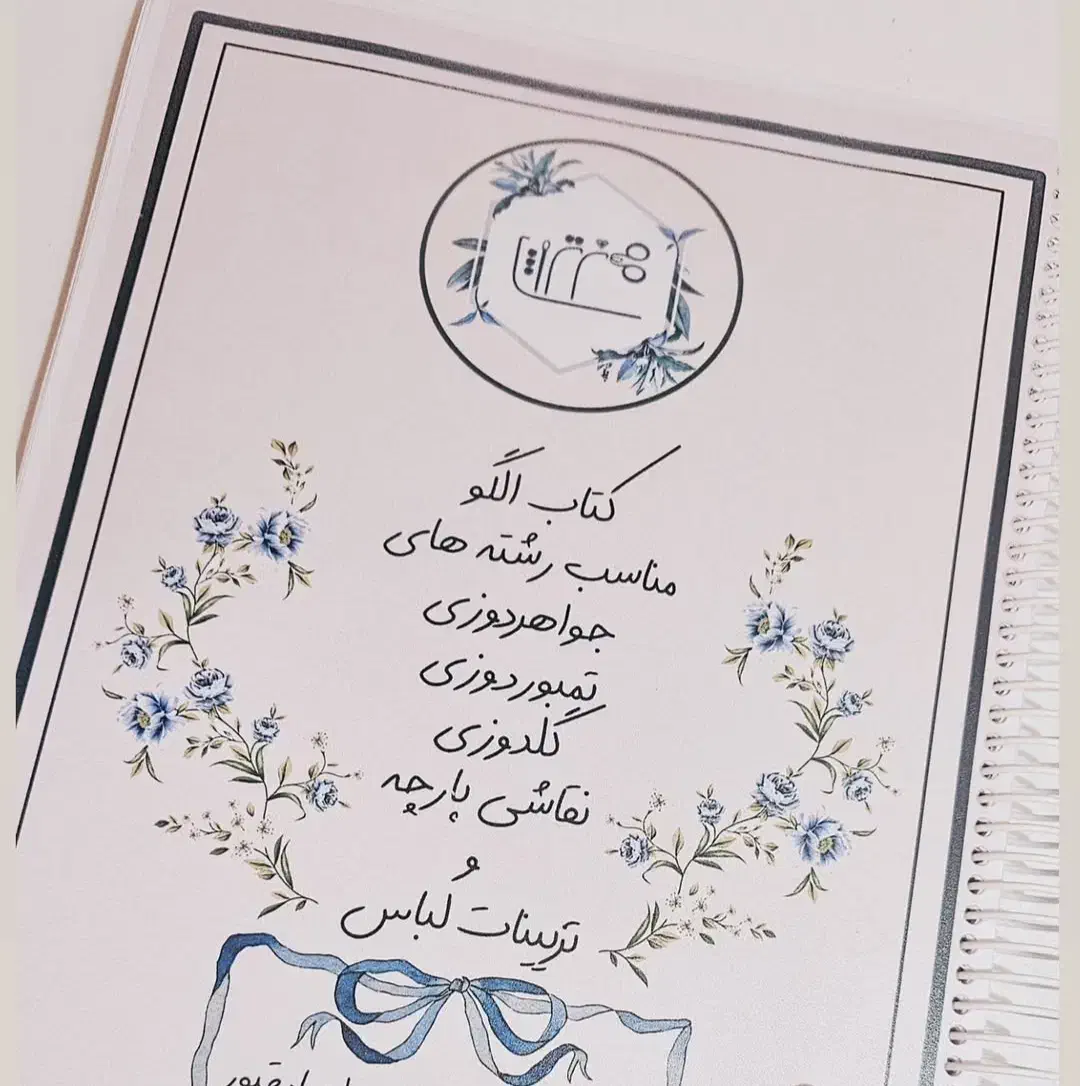 کتاب الگو
مناسب رشته های
جواهردوزی
تمبوردوزی
گلدوزی
نقاشی پارچه
و
تزیینات لباس